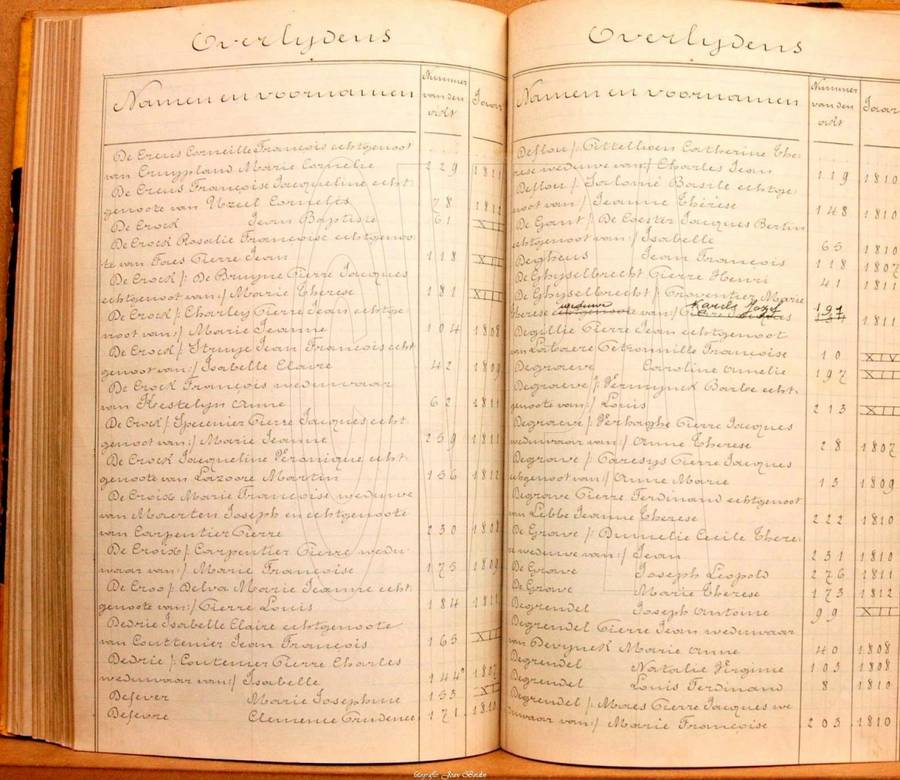 Overlydens
Namen en voornamen Nummer van den acte Jaar
De Creus Corneille François echtgenoot
van Cruypland Marie Cornelie 229 1811
De Creus Françoise Jacqueline echt:
genoote van Uzeel Cornelis 78 1812
De Crock Jean Baptiste 61 XII
De Crock Rosalie Françoise echtgenoo:
te van Faes Pierre Jean 118 XII
De Crock /: De Bruyne Pierre Jacques
echtgenoot van:/ Marie Therese 181 XIII
De Crock /: Charley Pierre Jean echtge:
noot van:/ Marie Jeanne 104 1808
De Crock /: Struye Jean François echt
genoot van:/ Isabelle Claire 42 1809
De Crock François weduwaar
van Kestelyn Anne 62 1811
De Crock /: Specenier Pierre Jacques echt:
genoot van:/ Marie Jeanne 259 1811
De Crock Jacqueline Véronique echt:
genoote van Lazoore Martin 136 1812
De Croix Marie Françoise weduwe
van Maerten Joseph en echtgenoote
van Carpentier Pierre 230 1808
De Croix /: Carpentier Pierre wedu:
waar van:/ Marie Françoise 175 1809
De Croo /: Delva Marie Jeanne echt:
genoote van:/ Pierre Louis 184 1811
Dedrie Isabelle Claire echtgenoote
van Couttenier Jean François 165 XII
Dedrie /: Coutenier Pierre Charles
weduwaar van:/ Isabelle 144 1807
Defever Marie Josephine 153 XI
Defevre Clemence Prudence 171 1810
Overlydens
Namen en voornamen Nummer van den acte Jaar
Deflou /: Pittellioen Catherine The:
rese weduwe van:/ Charles Jean 119 1810
Deflou /: Basile echtge:
noot van:/ Jeanne Thérèse 148 1810
De Gant /: De Coester Jacques Bertin
echtgenoot van:/ Isabelle 65 1810
Degheus Jean François 118 1807
De Ghyselbrecht Pierre Henri 41 1811
De Ghyselbrecht /: Proventier Marie
Therese weduwe van:/ Karels Jozef 197 1811
Degillie Pierre Jean echtgenoot
van Labaere Petronnille Françoise 10 XIV
Degraeve Caroline Amelie 197 XII
Degraeve /: Vermynck Barbe echt:
genoote van:/ Louis 213 XII
Degrave /: Verhaghe Pierre Jacques
weduwaar van:/ Anne Therese 28 1807
Degrave /: Caresys Pierre Jacques
echtgenoot van:/ Anne Marie 13 1809
Degrave Pierre Ferdinand echtgenoot
van Lebbe Jeanne Therese 222 1810
De Grave /: Dumelie Cecile There:
se weduwe van:/ Jean 231 1810
De Grave Joseph Leopold 276 1811
De Grave Marie Therese 173 1812
Degrendel Joseph Antoine 99 XII
Degrendel Pierre Jean weduwaar
van Devynck Marie Anne 40 1808
Degrendel Natalie Virginie 103 1808
Degrendel Louis Ferdinand 8 1810
Degrendel /: Maes Pierre Jacques we
duwaar van:/ Marie Françoise 203 1810
fotografie Jean Bordon